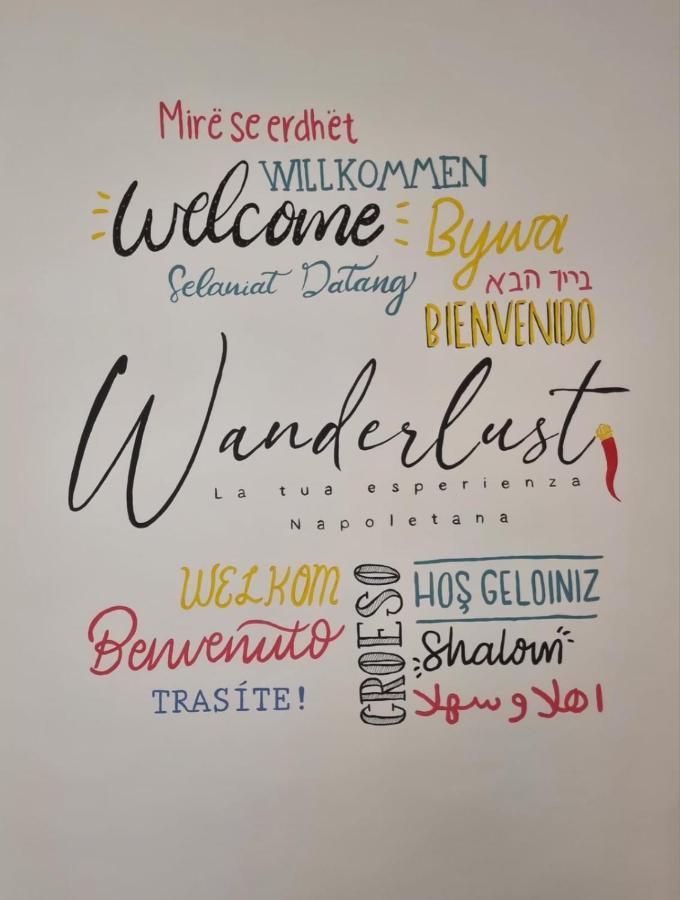 Mirë se erdhët
WILLKOMMEN
Welcome
Bywa
Selamat Datang
ברוך הבא
BIENVENIDO
Wanderlust
La tua esperienza
Napoletana
WELKOM
CROESO
HOŞ GELDINIZ
Benvenuto
Shalom
TRASÍTE!
اهلا و سهلا